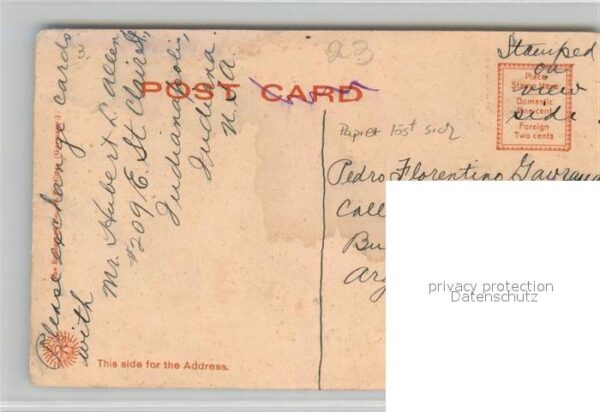 Please exchange cards
with
Mr. Hubert L. Allen
#209 E. St. Clair St.,
Indianapolis,
Indiana.
U.S.A
23
POST CARD
Stamped
on
view
side.
Place
Stamp Here
Domestic
One cent
Foreign
Two cents
Papier löst sich
Pedro Florentino
Call
Bu
Arg
privacy protection
Datenschutz
This side for the Address.